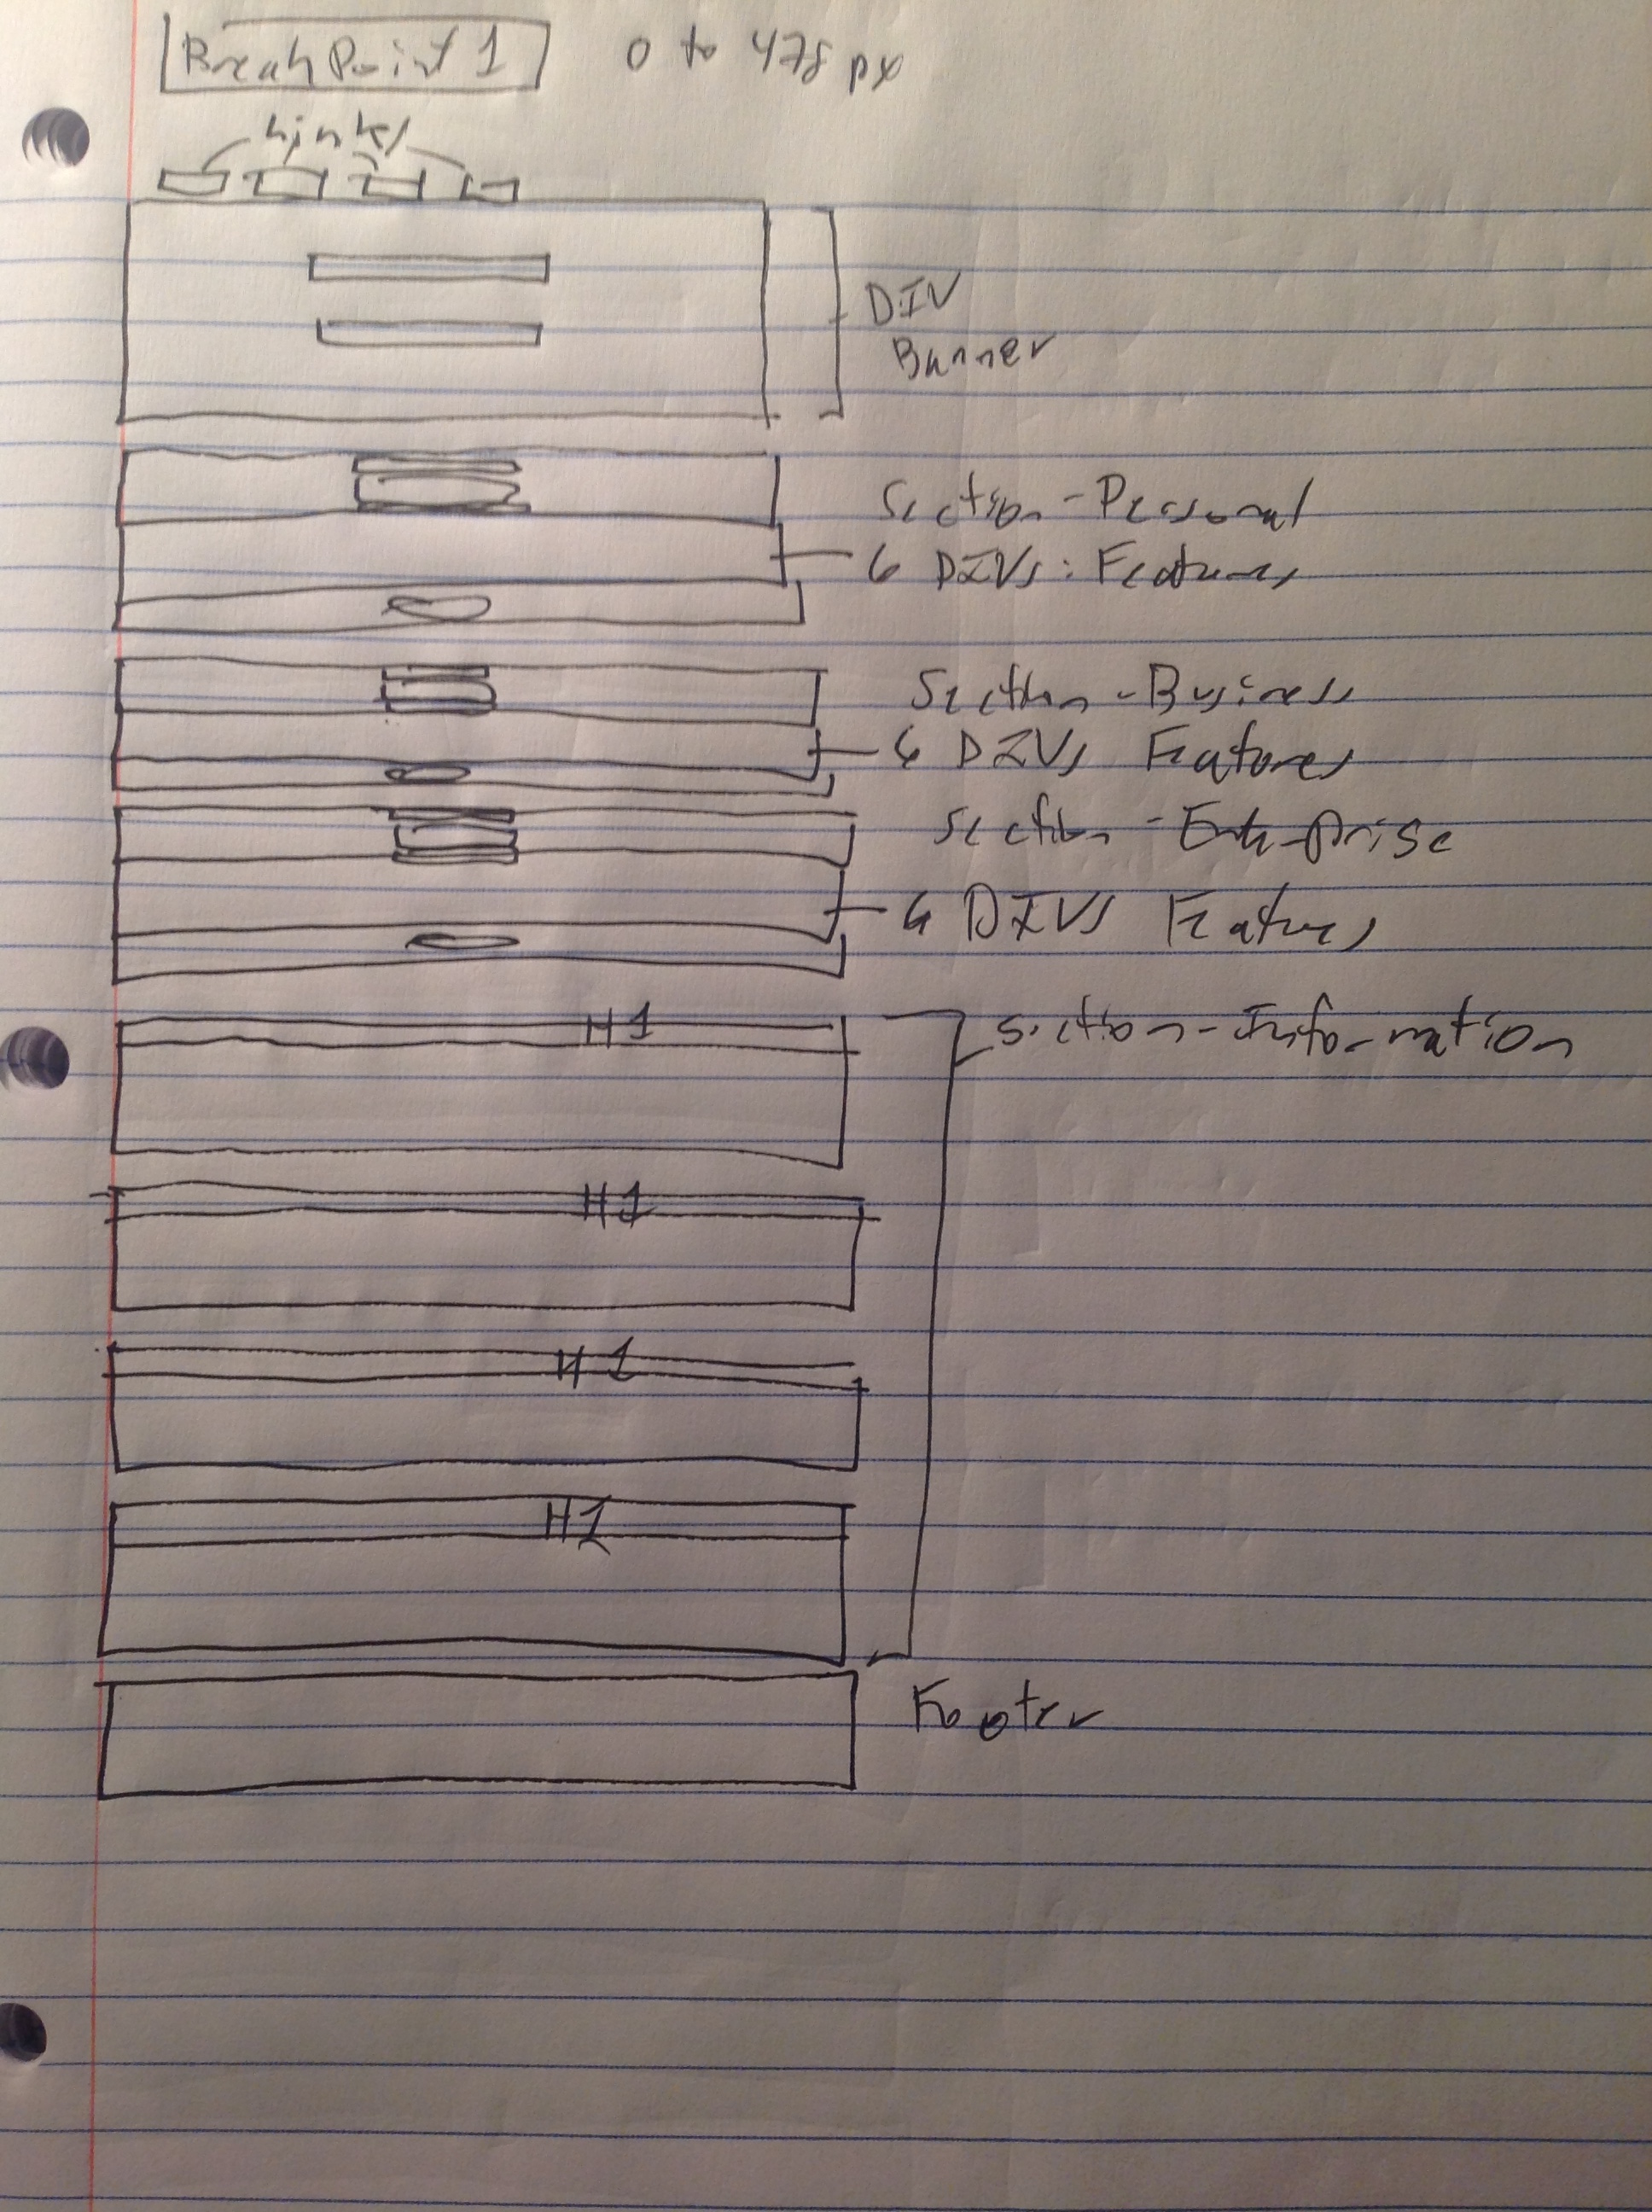 BreakPoint 1 0 to 478 px
Links
DIV
Banner
Section - Personal
6 DIVs: Features
Section - Business
6 DIVs Features
Section - Enterprise
6 DIVs Features
H1
Section - Information
H1
H1
H1
Footer